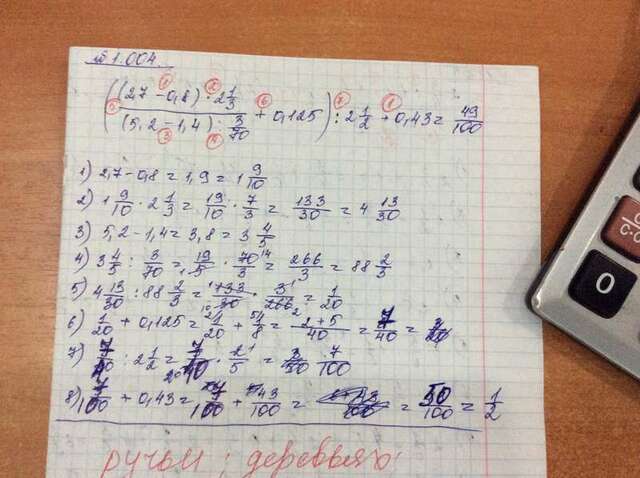 № 1.004.
((2,7 - 0,8) · 2 1/3 / (5,2 - 1,4) : 3/70 + 0,125) : 2 1/2 + 0,43 = 49/100
1) 2,7 - 0,8 = 1,9 = 1 9/10
2) 1 9/10 · 2 1/3 = 19/10 · 7/3 = 133/30 = 4 13/30
3) 5,2 - 1,4 = 3,8 = 3 4/5
4) 3 4/5 : 3/70 = 19/5 · 70/3 = 266/3 = 88 2/3
5) 4 13/30 : 88 2/3 = 133/30 · 3/266 = 1/20
6) 1/20 + 0,125 = 1/20 + 1/8 = 2+5/40 = 7/40
7) 7/40 : 2 1/2 = 7/40 · 2/5 = 7/100
8) 7/100 + 0,43 = 7/100 + 43/100 = 50/100 = 1/2
ручьи ; деревья
0